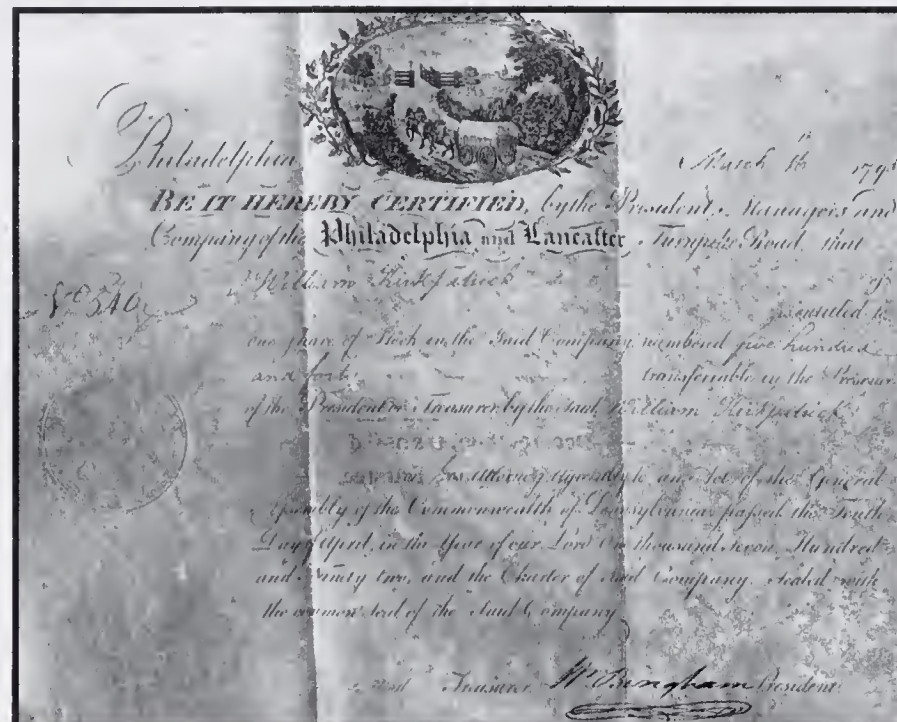 Philadelphia, March 16 179
BE IT HEREBY CERTIFIED, by the President, Managers and
Company of the Philadelphia and Lancaster Turnpike Road, that
William Kirkpatrick of
No 540
is entitled to
one share of Stock in the said Company, numbered five hundred
and forty transferrable in the Presence
of the President or Treasurer by the said, William Kirkpatrick
his Attorney agreeably to an Act of the General
Assembly of the Commonwealth of Pennsylvania passed the Ninth
Day of April, in the Year of our Lord One thousand seven Hundred
and Ninety two, and the Charter of said Company. Sealed with
the common seal of the said Company
Treasurer Wm Bingham President